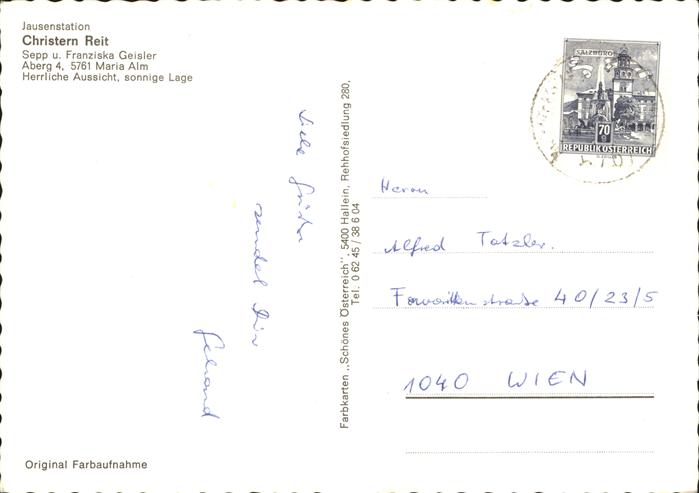 Jausenstation
Christern Reit
Sepp u. Franziska Geisler
Aberg 4, 5761 Maria Alm
Herrliche Aussicht, sonnige Lage
Liebe Grüße
sendet Dir
Gehard
Original Farbaufnahme
Farbkarten „Schönes Österreich", 5400 Hallein, Rehhofsiedlung 280,
Tel. 0 62 45 / 38 6 04
SALZBURG
70 g
REPUBLIK ÖSTERREICH
Herrn
Alfred Tatzler.
Favoritenstrasse 40/23/5
1040 WIEN